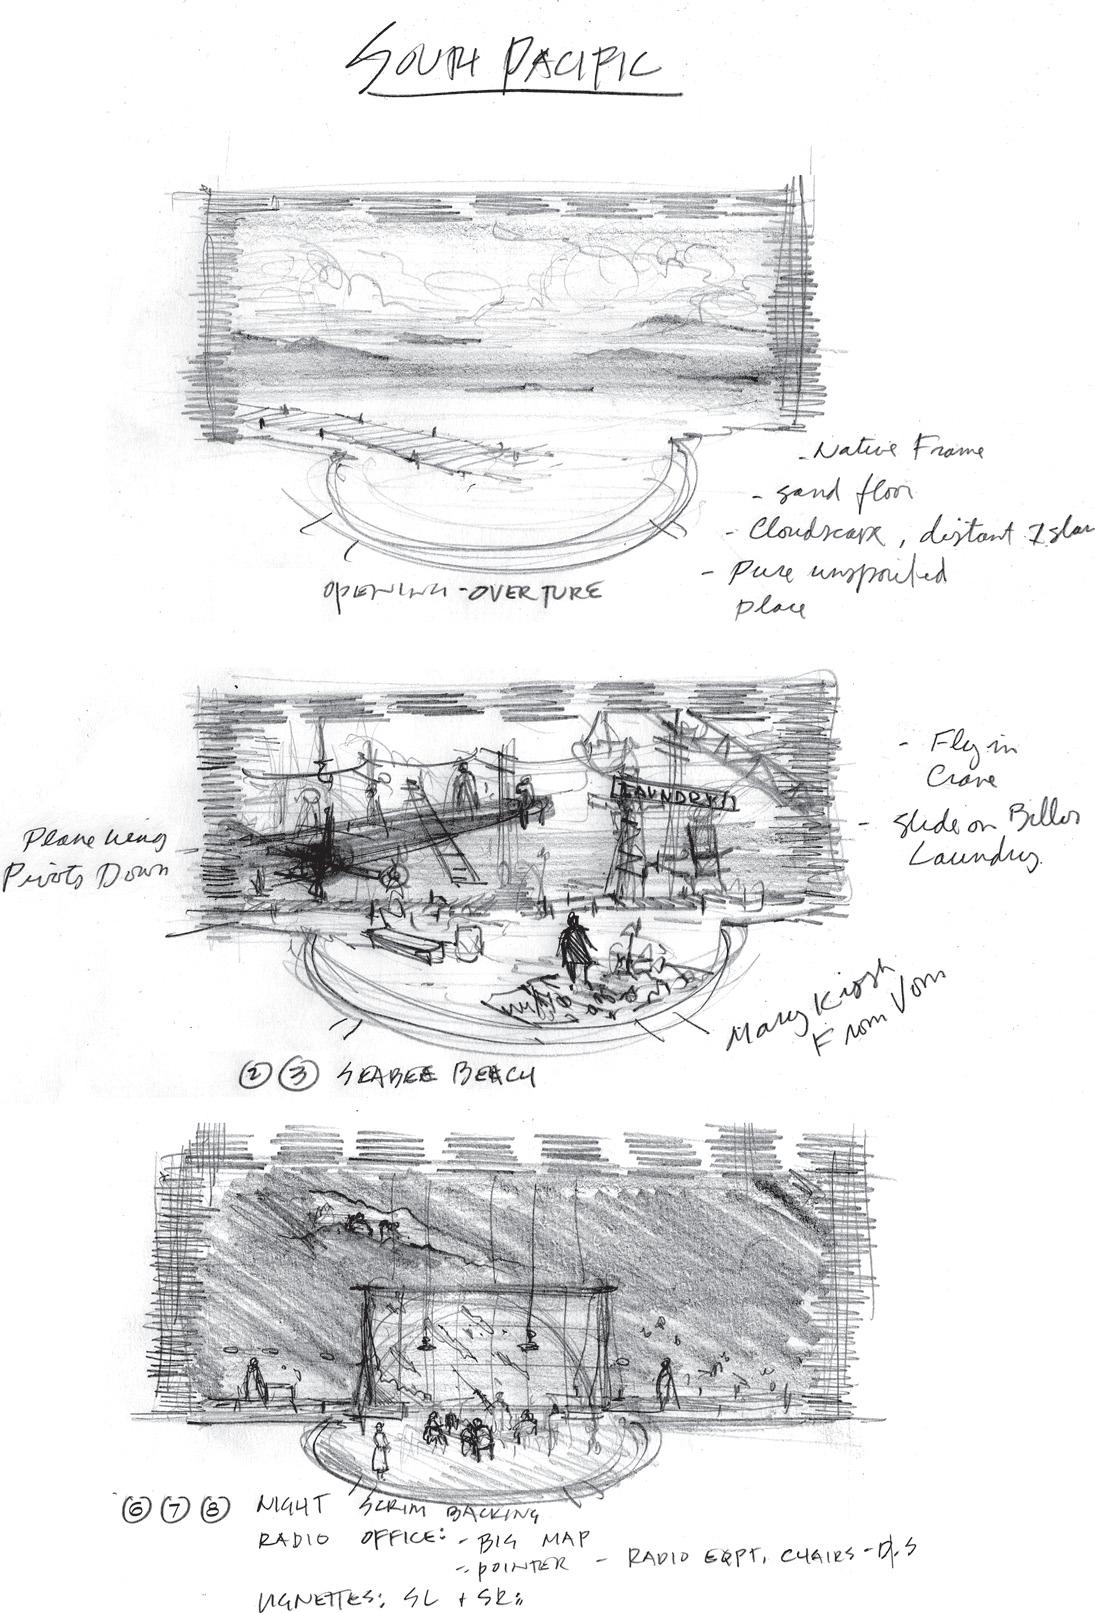 South Pacific
- Native Frame
- sand floor
- Cloudscape, distant Islan
- Pure unspoiled
place
OPENING - OVERTURE
- Fly in
Crane
- Slide on Billis
Laundry
Plane wing
Pivots Down
LAUNDRY
Mary
From Vom
② ③ SEABEE BEACH
⑥ ⑦ ⑧ NIGHT SCRIM BACKING
RADIO OFFICE: - BIG MAP
- POINTER - RADIO EQPT, CHAIRS - D.S
VIGNETTES: SL + SR: